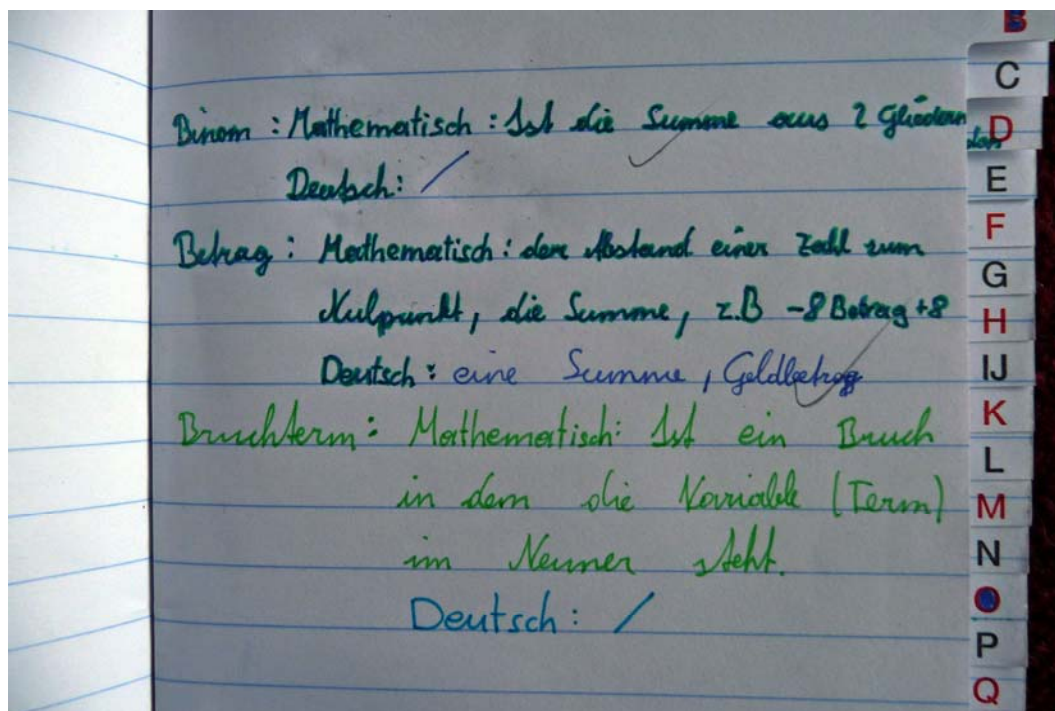 Binom : Mathematisch : Ist die Summe aus 2 Gliedern
Deutsch: /
Betrag : Mathematisch : der Abstand einer Zahl zum
Nulpunkt, die Summe, z.B -8 Betrag +8
Deutsch : eine Summe, Geldbetrag
Bruchterm : Mathematisch: Ist ein Bruch
in dem die Variable (Term)
im Nenner steht.
Deutsch : /
B
C
D
E
F
G
H
IJ
K
L
M
N
O
P
Q